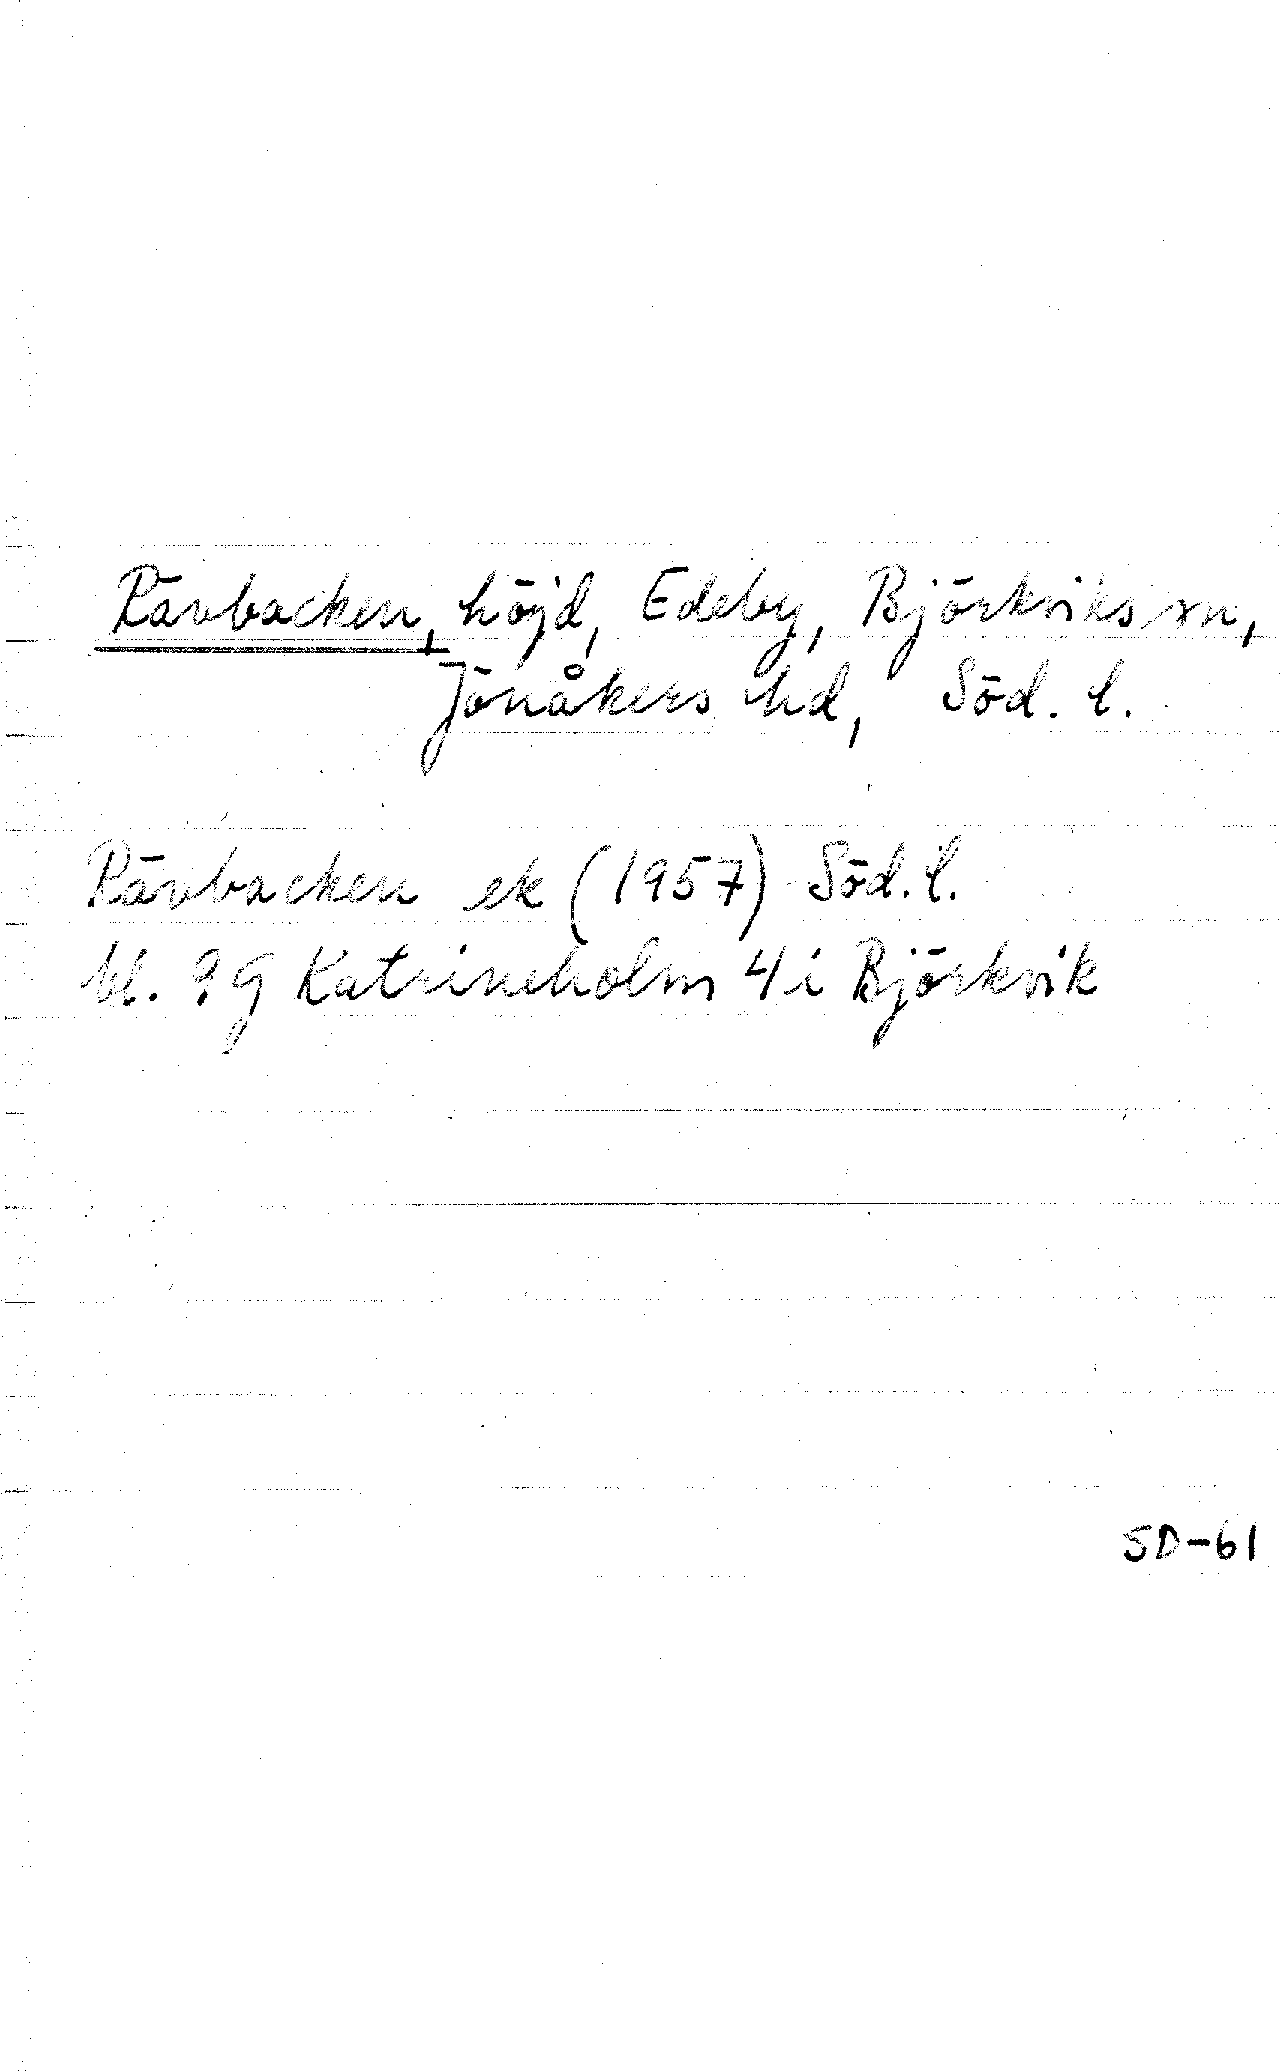 Rävbacken, höjd, Edeby, Björkviks sn,
Jönåkers hd, Söd. l.
Rävbacken ek (1957) Söd. l.
bl. 9G Katrineholm 4 i Björkvik
SD-61